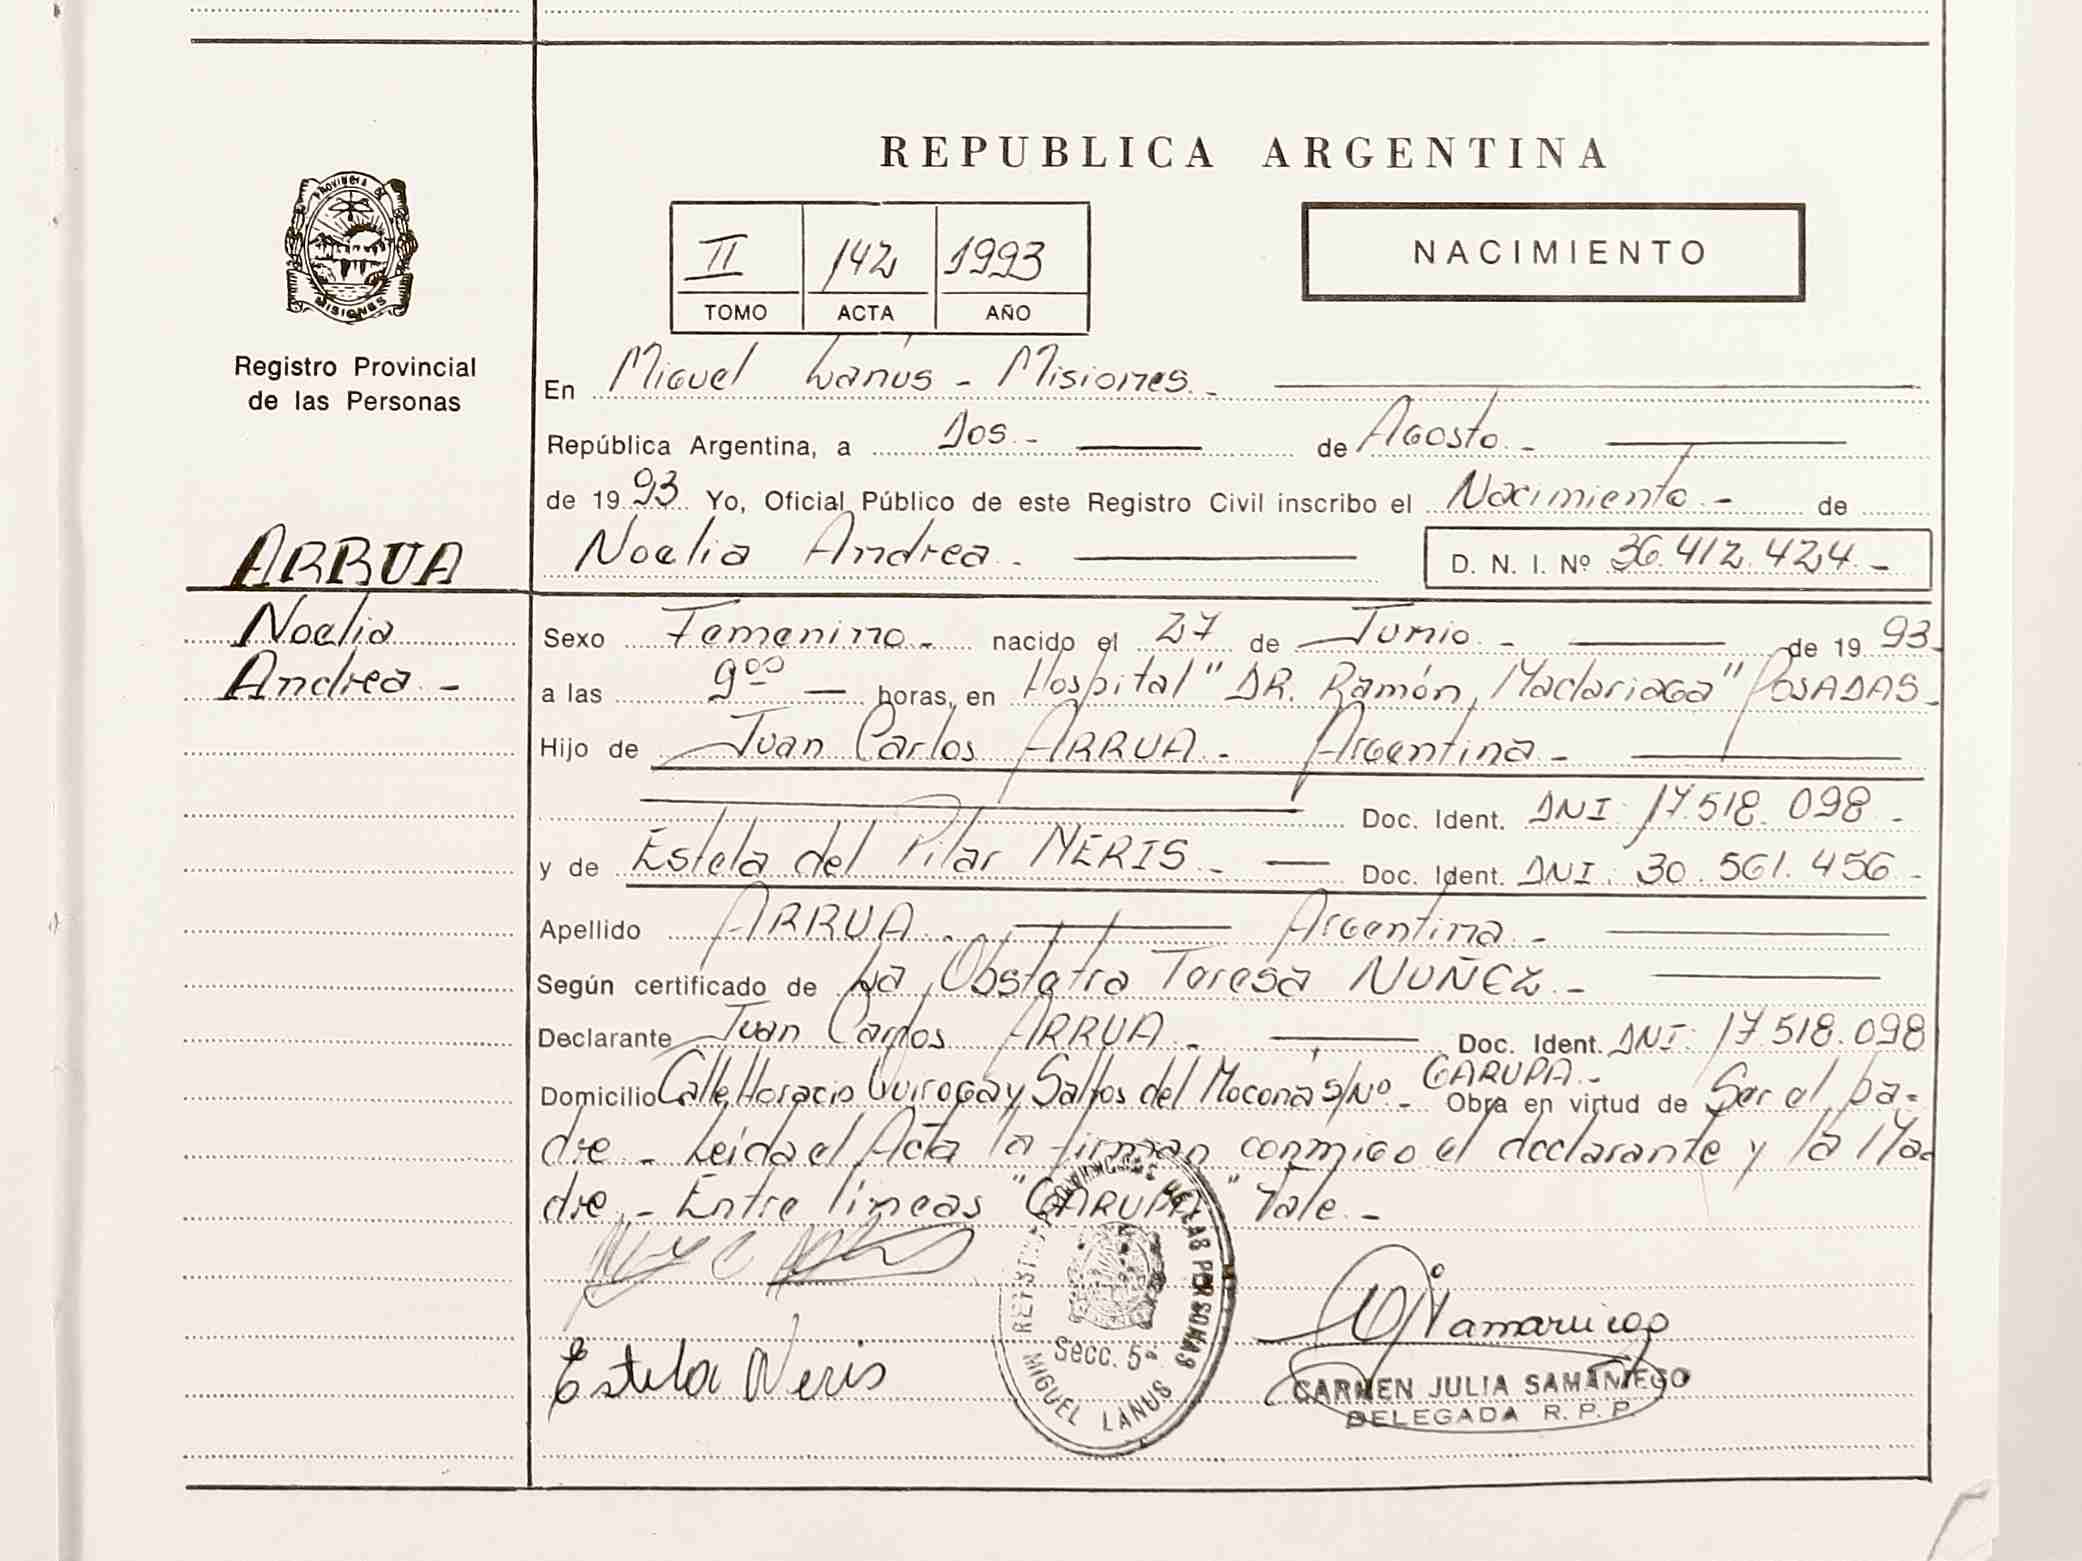 REPUBLICA ARGENTINA
PROVINCIA DE
MISIONES
Registro Provincial
de las Personas
II 142 1993
TOMO ACTA AÑO
NACIMIENTO
En Miguel Lanús - Misiones.-
República Argentina, a Dos.- de Agosto.-
de 1993 Yo, Oficial Público de este Registro Civil inscribo el Nacimiento.- de
Noelia Andrea.- D. N. I. Nº 36.412.424.-
ARRUA
Noelia
Andrea.-
Sexo Femenino.- nacido el 27 de Junio.- de 1993.-
a las 9⁰⁰ — horas, en Hospital "DR. Ramón Madariaga" POSADAS.-
Hijo de Juan Carlos ARRUA.- Argentina.-
Doc. Ident. DNI: 17.518.098.-
y de Estela del Pilar NERIS.- Doc. Ident. DNI: 30.561.456.-
Apellido ARRUA.- Argentina.-
Según certificado de La Obstetra Teresa NUÑEZ.-
Declarante Juan Carlos ARRUA.- Doc. Ident. DNI: 17.518.098
Domicilio Calle Horacio Quiroga y Saltos del Moconá S/Nº.- GARUPA.- Obra en virtud de Ser el pa-
dre.- Leída el Acta la firman conmigo el declarante y la Ma-
dre.- Entre líneas "GARUPA" Vale.-
Estela Neris
REGISTRO PROVINCIAL DE LAS PERSONAS
Secc. 5ª
MIGUEL LANUS
CARMEN JULIA SAMANIEGO
DELEGADA R. P. P.